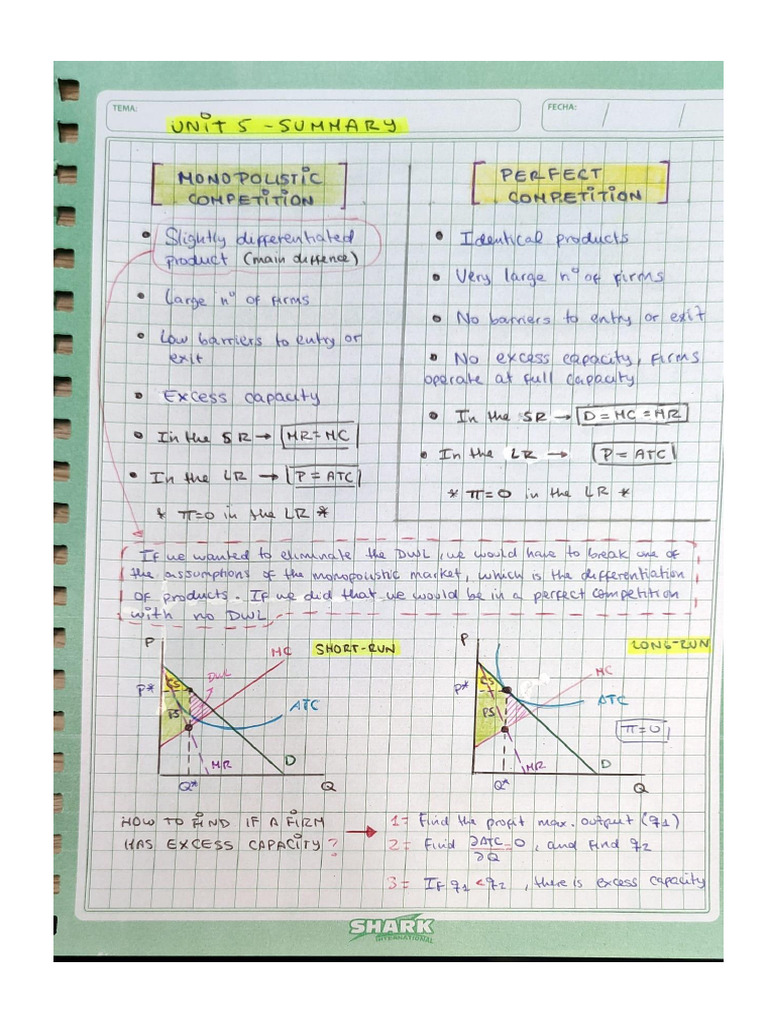 TEMA:
FECHA: / /
UNIT 5 - SUMMARY
MONOPOLISTIC
COMPETITION
• Slightly differentiated
product (main diffence)
• Large nº of firms
• Low barriers to entry or
exit
• Excess capacity
• In the SR → MR = MC
• In the LR → P = ATC
* π=0 in the LR *
PERFECT
COMPETITION
• Identical products
• Very large nº of firms
• No barriers to entry or exit
• No excess capacity, firms
operate at full capacity
• In the SR → D = MC = MR
• In the LR → P = ATC
* π=0 in the LR *
If we wanted to eliminate the DWL, we would have to break one of
the assumptions of the monopolistic market, which is the differentiation
of products. If we did that we would be in a perfect competition
with no DWL
SHORT-RUN
P
MC
DWL
CS
P*
PS
ATC
MR
D
Q*
Q
LONG-RUN
P
MC
CS
P*
ATC
PS
π=0
MR
D
Q*
Q
HOW TO FIND IF A FIRM
HAS EXCESS CAPACITY? →
1= Find the profit max. output (q1)
2= Find ∂ATC/∂Q=0, and find q2
3= If q1 < q2, there is excess capacity
SHARK
INTERNATIONAL